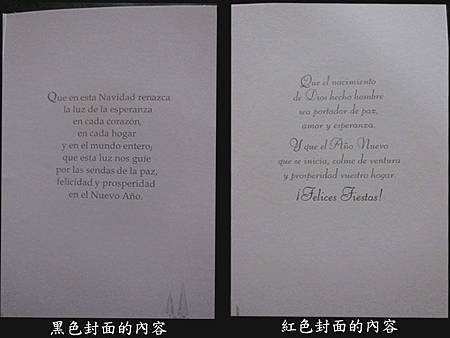 Que en esta Navidad renazca
la luz de la esperanza
en cada corazón,
en cada hogar
y en el mundo entero;
que esta luz nos guíe
por las sendas de la paz,
felicidad y prosperidad
en el Nuevo Año.
黑色封面的內容
Que el nacimiento
de Dios hecho hombre
sea portador de paz,
amor y esperanza.
Y que el Año Nuevo
que se inicia, colme de ventura
y prosperidad vuestro hogar.
¡Felices Fiestas!
紅色封面的內容